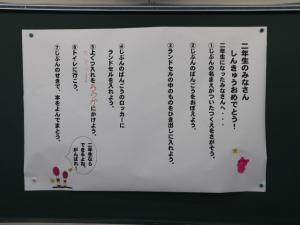 二年生のみなさん
しんきゅうおめでとう！
二年生になったみなさんへ・・・
①じぶんの名まえがついたつくえをさがそう。
②じぶんのばんごうをおぼえよう。
③ランドセルの中のものをひき出しに入れよう。
④じぶんのばんごうのロッカーに
ランドセルを入れよう。
⑤よくつ入れをろうかにかけよう。
⑥トイレに行こう。
⑦じぶんのせきで、本をよんでまとう。
二年生なら
できるよね。
がんばれ！